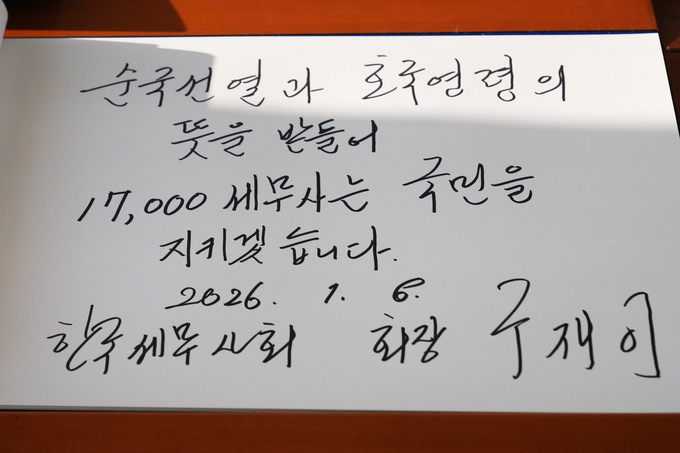 순국선열과 호국영령의
뜻을 받들어
17,000 세무사는 국민을
지키겠습니다.
2026. 1. 6.
한국세무사회 회장 구재이